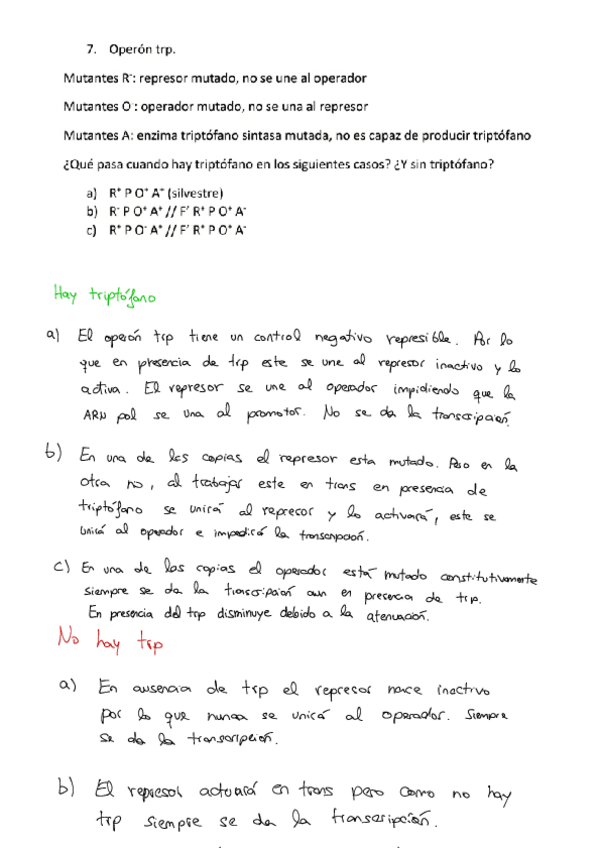 7. Operón trp.
Mutantes R⁻: represor mutado, no se une al operador
Mutantes O : operador mutado, no se una al represor
Mutantes A: enzima triptófano sintasa mutada, no es capaz de producir triptófano
¿Qué pasa cuando hay triptófano en los siguientes casos? ¿Y sin triptófano?
a) R⁺ P O⁺ A⁺ (silvestre)
b) R⁻ P O⁺ A⁺ // F' R⁺ P O⁺ A⁻
c) R⁺ P O⁻ A⁺ // F' R⁺ P O⁺ A⁻
Hay triptófano
a) El operón trp tiene un control negativo represible. Por lo
que en presencia de trp este se une al represor inactivo y lo
activa. El represor se une al operador impidiendo que la
ARN pol se una al promotor. No se da la transcripción.
b) En una de las copias el represor esta mutado. Pero en la
otra no, al trabajar este en trans en presencia de
triptófano se unirá al represor y lo activará, este se
unirá al operador e impedirá la transcripción.
c) En una de las copias el operador está mutado constitutivamente
siempre se da la transcripción aun en presencia de trp.
En presencia del trp disminuye debido a la atenuación.
No hay trp
a) En ausencia de trp el represor nace inactivo
por lo que nunca se unirá al operador. Siempre
se da la transcripción.
b) El represor actuará en trans pero como no hay
trp siempre se da la transcripción.